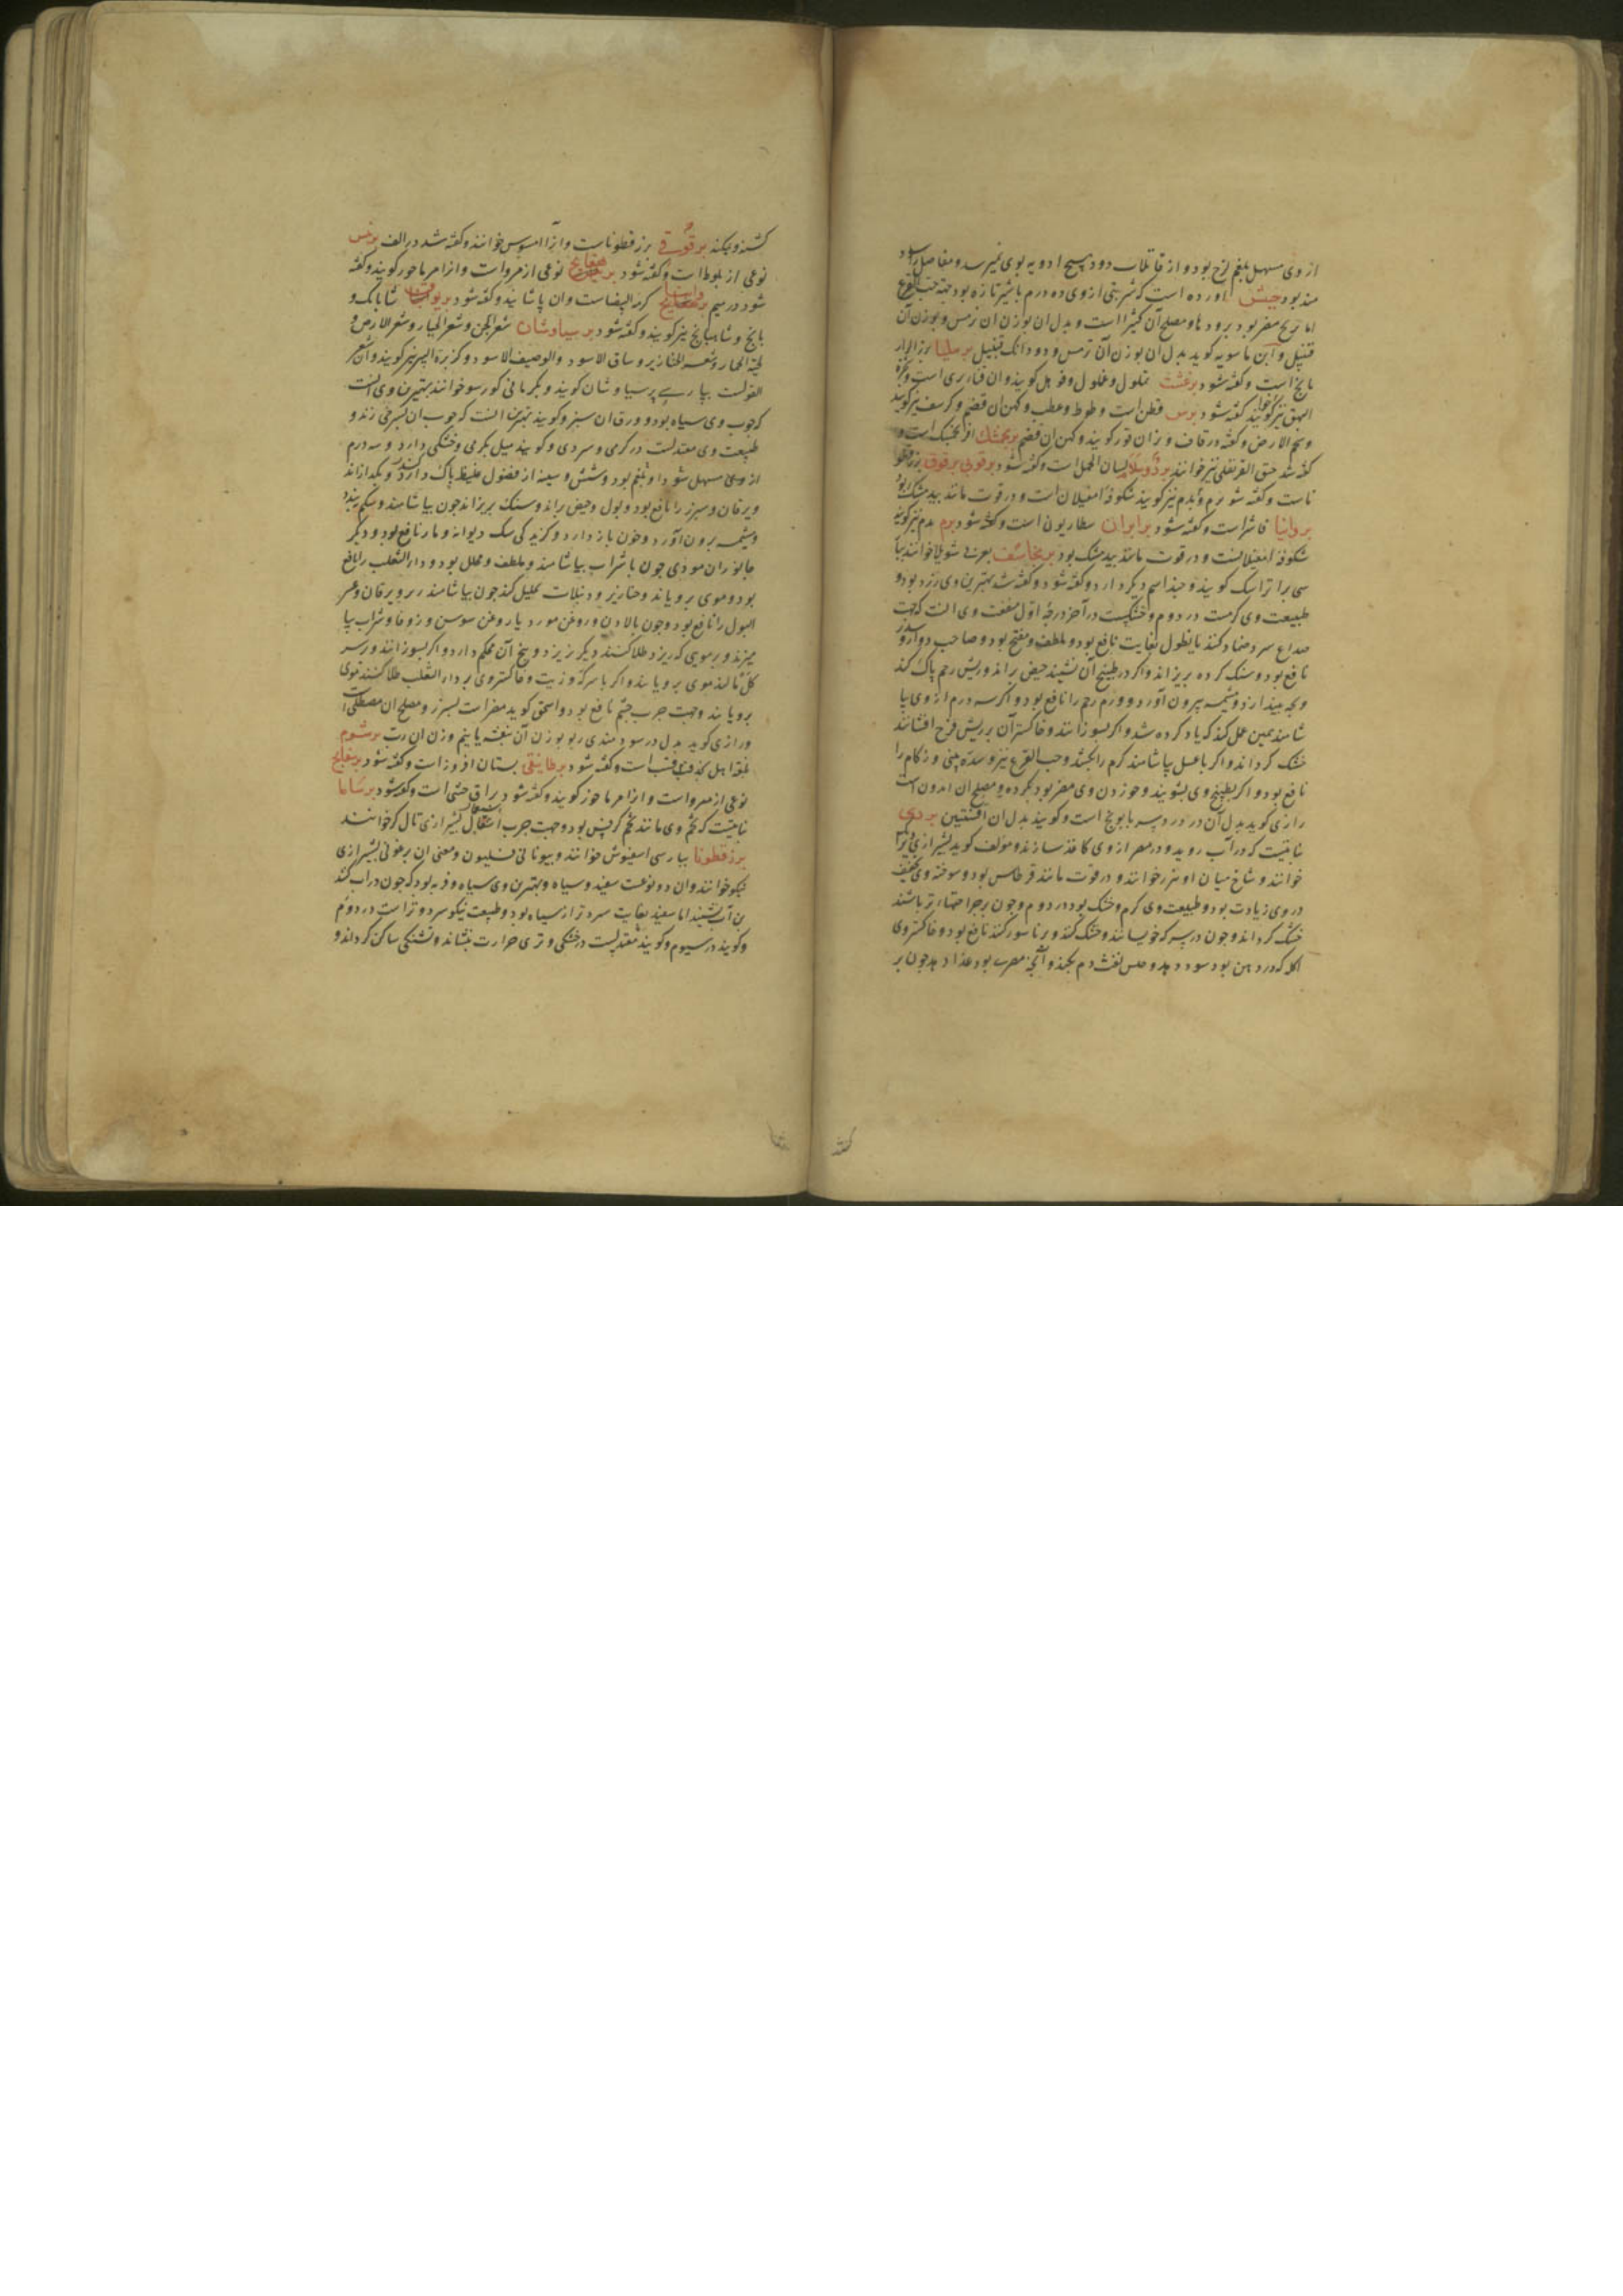 از وی مسهل بلغم لزج بود و از قاتلات دود هیچ ادویه بوی نمیرسد و مفاصل را سود
مند بود حبش آورده است که شربتی از وی ده درم باشیر تازه بود جهة حب القرع
اما بریح مضر بود برودها و مصلح آن کثیرا است و بدل ان بوزن ان ترمس و بوزن آن
قنبیل و ابن ماسویه کوید بدل ان بوزن آن ترمس و دو دانک قنبیل برملیا
است وکفته شود برغشت تملول و غملول و قو هل کویند وان قنابری است
البهق نیز کویند کفته شود برس قطن است و طوط و عطب و کهن ان قضم و کرسف نیز کویند
و شحم الارض وکفته در قاف و نزان قور کویند وکهن ان قضم برنجمشک افرنجمشک است و
کفته شد حبق القرنفلی نیز خوانند بردوسلا لسان الحمل است وکفته شود برقوبی برقوق بزر قطو
ناست وکفته شو برم و بدم نیز کویند شکوفه امغیلان است و در قوت مانند بید مشک بود
بروانیا فاشرا است وکفته شود برابران سطاریون است وکفته شود برم بدم نیز کویند
شکوفه امغیلانست و در قوت مانند بید مشک بود برنجاسف بعربی شویلا خوانند بپا
سی برتراسک کویند و چند اسم دیکر دارد وکفته شود وکفته شد بهترین وی زرد بود و
طبیعت وی کرمست در دوم و خشکست در آخر درجۀ اول منفعت وی انست که جهت
صداع سرد ضماد کنند یا نطول بغایت نافع بود و ملطف و مفتح بود و صاحب دوار و سدر
نافع بود و سنک کرده بریزاند و اکر در طبیخ آن نشیند حیض براند و ریش رحم پاک کند
و بچه بیندازد و مشیمه بیرون آورد و ورم رحم را نافع بود و اکر سه درم از وی بیا
شامند همین عمل کند که یاد کرده شد و اکر بسوزانند و خاکستر آن بر ریش فرج افشانند
خشک کرداند و اکر با عسل بیاشامند کرم را بکشد و حب القرع نیز و سدۀ بینی و زکام را
نافع بود و اکر بطبیخ وی بشویند و خوردن وی مضر بود بکرده و مصلح ان انیسون است
رازی کوید بدل آن در درد سر بابونج است و کویند بدل ان افسنتین بردی
نباتیست که در آب روید و در مصر از وی کاغذ سازند و مؤلف کوید بشیرازی
خوانند و شاخ میان او خوانند و در قوت مانند قرطاس بود و سوخته وی تجفیف
در وی زیادت بود و طبیعت وی کرم و خشک بود در دوم و چون بر جراحتهاء تر باشند
خشک کرداند و چون در سرکه خویسانند و خشک کنند و بر ناسور کنند نافع بود و خاکستر وی
اکله که در دهن بود سود دهد و حبس نفث دم بکند و آنچه مصری بود غذا دهد چون بر
کشند و بمکند برقوقی بزر قطوناست و آنرا اسپوس خوانند وکفته شد در الف برنس
نوعی از بلوط است وکفته شود نوعی از مرو است و انرا مرماحوز کویند وکفته
شود در میم کرمة البیضاست وان پاشا نیدو کفته شود شابانک و
بانج و شاهبانج نیز کویند وکفته شود برسیاوشان شعر الجن و شعر الجبار و شعر الارض و
لحیة الحمار و شعر الخنازیر و ساق الاسود و الوصیف الاسود و کزبرة البیر نیز کویند وان شعر
الغولست بپارسی پرسیاوشان کویند و بکرمانی کورسو خوانند بهترین وی انست
که چوب وی سیاه بود و ورق ان سبز و کویند بهترین انست که چوب ان بسرخی زند و
طبیعت وی معتدلست در کرمی و سردی و کویند میل بکرمی و خشکی دارد و سه درم
از وی مسهل سودا و بلغم بود و شش و سینه از فضول غلیظ پاک دارد و بکدازاند
و یرقان و سپرز را نافع بود و بول و حیض براند و سنک بریزاند چون بیاشامند و شکم ببندد
و مشیمه برون آورد و خون باز دارد و کزیدکی سک دیوانه و مار نافع بود و دیکر
جانوران موذی چون با شراب بیاشامند و ملطف و محلل بود و دار الثعلب را نافع
بود و موی برویاند و خنازیر و دبیلات تحلیل کند چون بیاشامند ربو و یرقان و عسر
البول را نافع بود و چون با لادن و روغن مورد یا روغن سوسن و زوفا و شراب بیا
میزند و بر مویی که ریزد طلا کنند دیکر نریزد و بیخ آن محکم دارد و اکر بسوزانند و بر سر
کل مالند موی برویاند و اکر با سرکه و زیت و خاکستر وی بر دار الثعلب طلا کنند موی
برویاند و جهت جرب چشم نافع بود و اسحق کوید مضر است بسپرز و مصلح ان مصطکی است
و رازی کوید بدل در سودمندی ربو بوزن آن بنفشه یا نیم وزن ان رب برشوم
بلغۀ اهل قنب است وکفته شود برطانیقی بستان افروز است وکفته شود برنفاج
نوعی از مرو است و انرا مرماحوز کویند وکفته شود براق خنثی است وکفته شود برساما
نباتیست که تخم وی مانند تخم کرفس بود و جهت جرب استعمال بشیرازی تال کر خوانند
بزر قطونا بپارسی اسفیوش خوانند و بیونانی فسلیون و معنی ان برغوثی بشیرازی
بنکو خوانند وان دو نوعست سفید و سیاه و بهترین وی سیاه و فربه بود که چون در اب کنند
بن آب نشیند اما سفید بغایت سردتر از سیاه بود و طبیعت بنکو سرد و تر است در دوم
و کویند در سیوم و کویند معتدلست در خشکی و تری حرارت بنشاند و تشنکی ساکن کرداند و